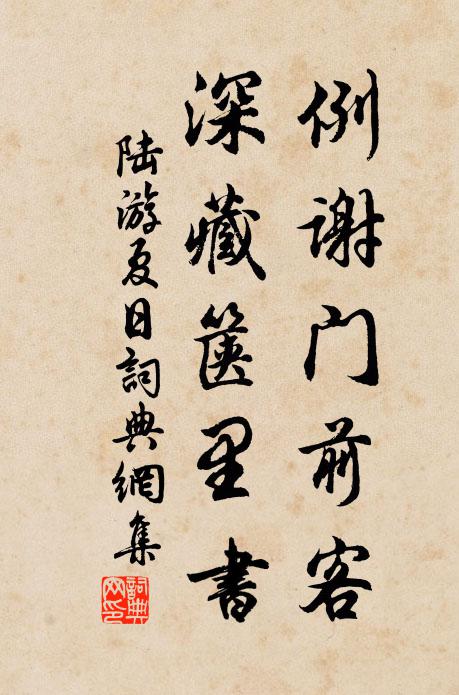 例谢门前客
深藏箧里書
陆游夏日詞典網集
詞典网印